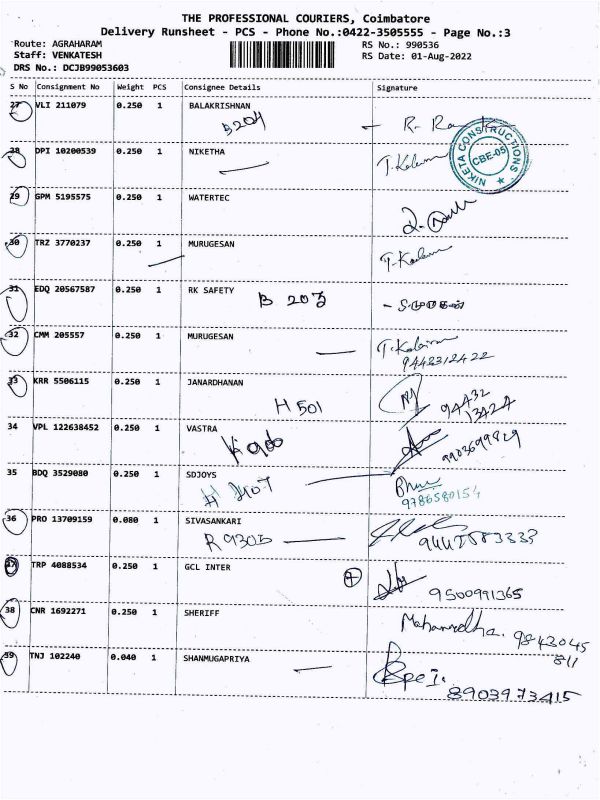 THE PROFESSIONAL COURIERS, Coimbatore
Delivery Runsheet - PCS - Phone No.:0422-3505555 - Page No.:3
Route: AGRAHARAM RS No.: 990536
Staff: VENKATESH RS Date: 01-Aug-2022
DRS No.: DCJB99053603
S No Consignment No Weight PCS Consignee Details Signature
27 VLI 211079 0.250 1 BALAKRISHNAN
B204
28 DPI 10200539 0.250 1 NIKETHA
NIKETA CONSTRUCTIONS CBE-05
29 GPM 5195575 0.250 1 WATERTEC
30 TRZ 3770237 0.250 1 MURUGESAN
31 EDQ 20567587 0.250 1 RK SAFETY
B 203
32 CMM 205557 0.250 1 MURUGESAN
9442312422
33 KRR 5506115 0.250 1 JANARDHANAN
H 501 94432
13424
34 VPL 122638452 0.250 1 VASTRA
9903699829
35 BDQ 3529080 0.250 1 SDJOYS
9786580154
36 PRO 13709159 0.080 1 SIVASANKARI
37 TRP 4088534 0.250 1 GCL INTER
9500991365
38 CNR 1692271 0.250 1 SHERIFF
9843045
811
39 TNJ 102240 0.040 1 SHANMUGAPRIYA
8903973415